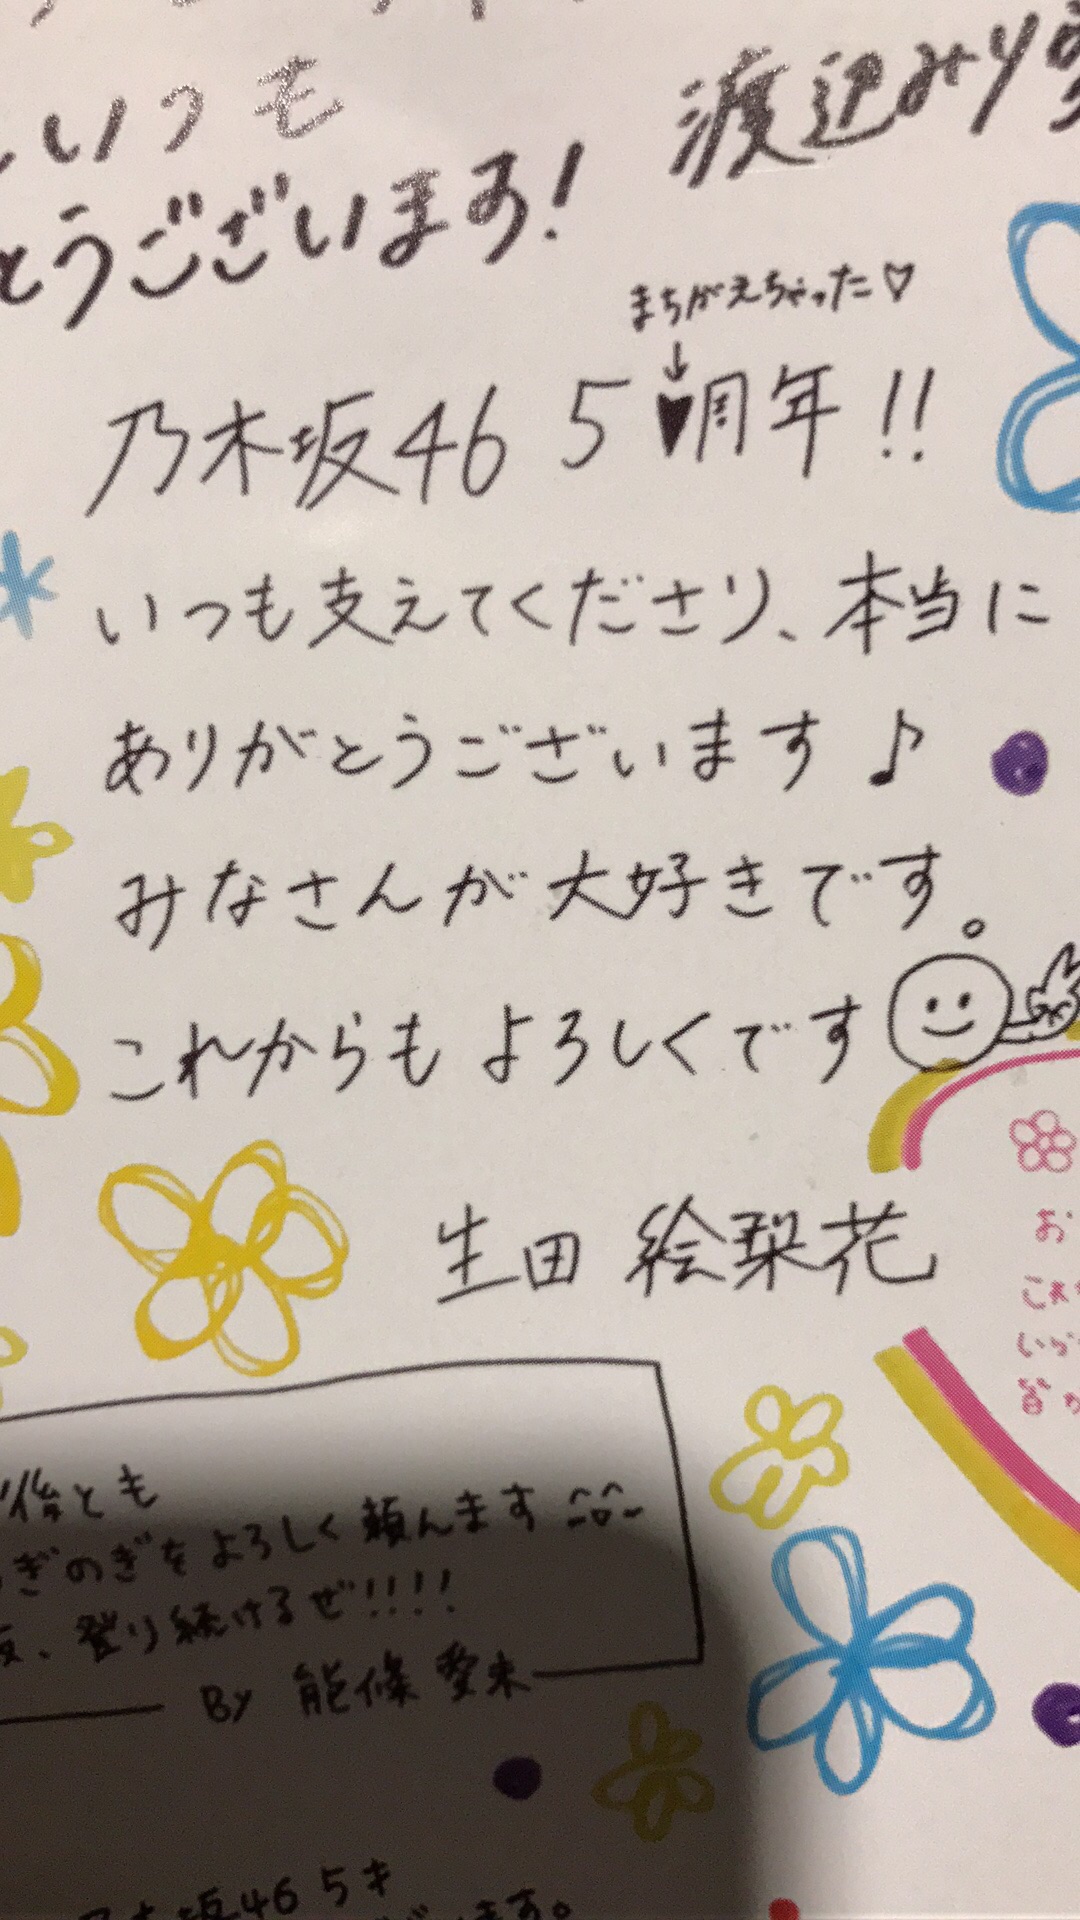 いつも
とうございます!
渡辺みり愛
まちがえちゃった♡
↓
乃木坂46 5♥周年!!
いつも支えてくださり、本当に
ありがとうございます♪
みなさんが大好きです。
これからもよろしくです
生田 絵梨花
お
これ
いら
皆
後とも
ぎのぎをよろしく頼んます
、登り続けるぜ!!!!
By 能條 愛未
乃木坂46 5キ
います。